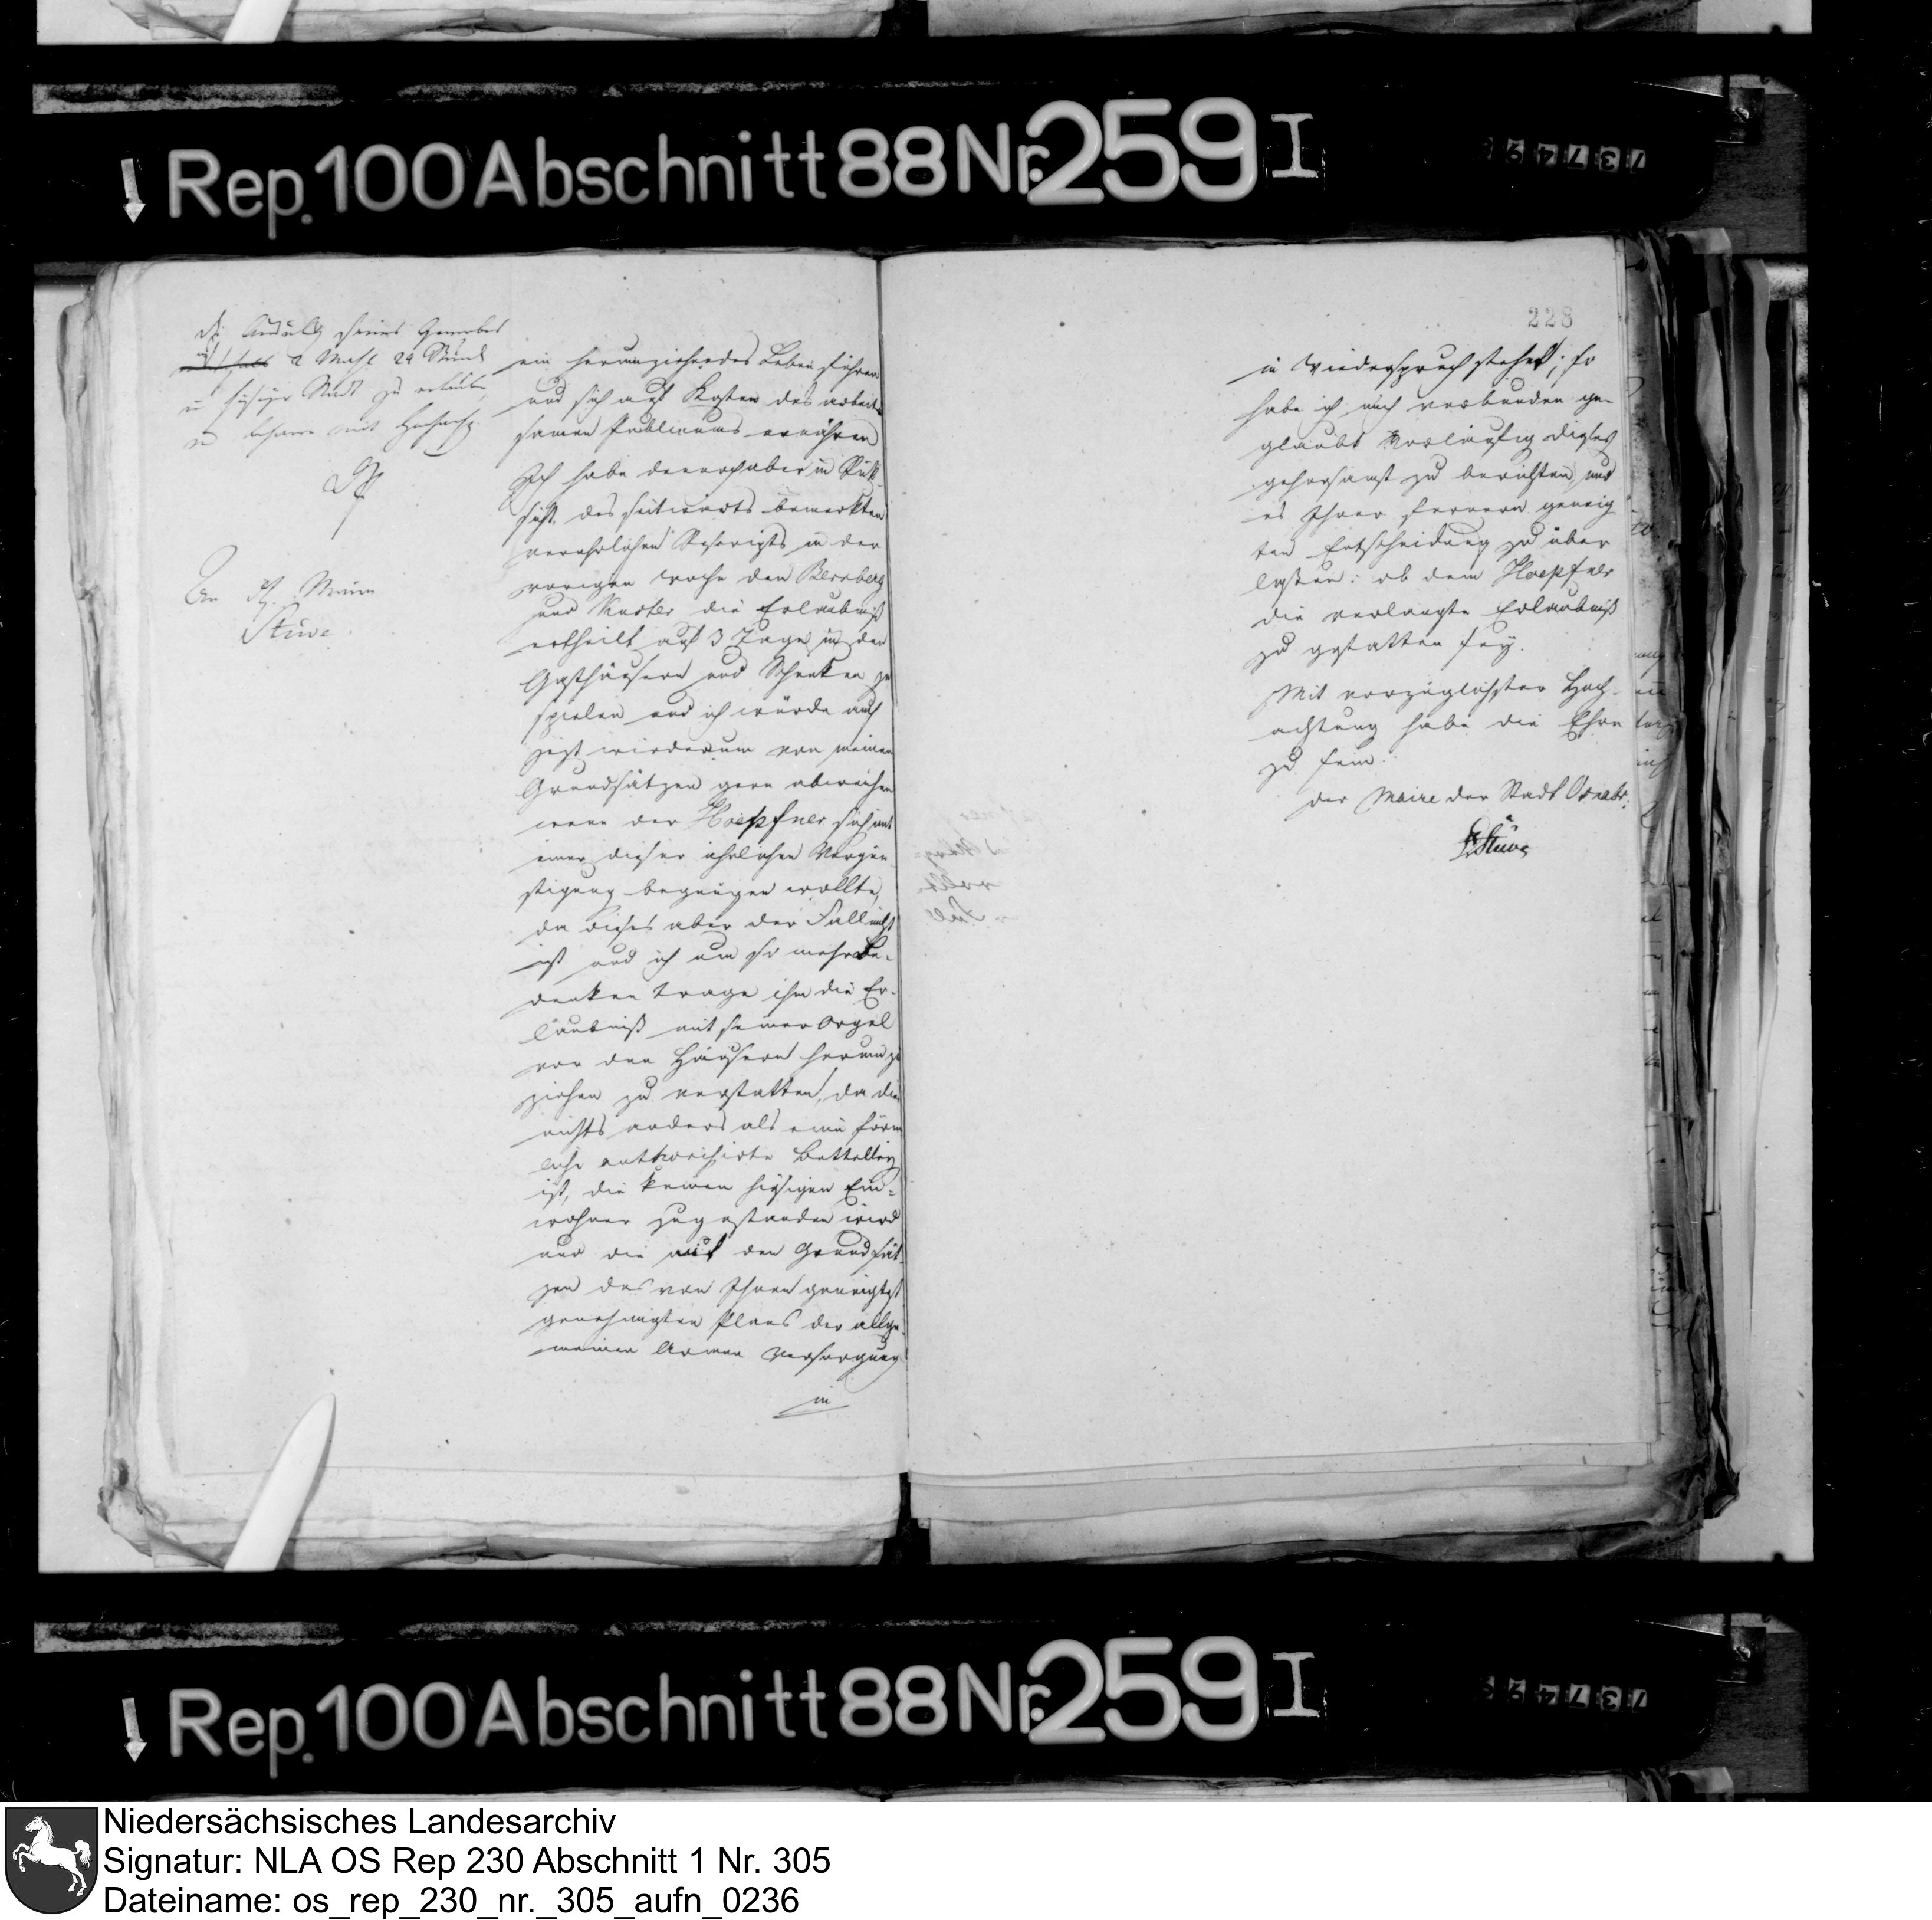 Rep. 100 Abschnitt 88 Nr. 259 I
die Ausübg seines Gewerbes
24 Stund
in hiesiger Stadt zu erlauben
u mit Hochachtg.
An H. Maire
Stüve.
ein herumziehendes Leben führen
und sich auf Kosten des arbeit-
samen Publicums ernähren
Ich habe dennoch aber in Rük-
sicht des seitwärts bemerkten
verehrlichen Rescripts in der
vorigen Woche den
und die Erlaubniß
ertheilt auf 3 Tage in den
Gasthäusern und Schenken zu
spielen und ich würde auch
jezt wiederum von meinen
Grundsätzen gern abweichen
wenn der Hoepfner sich mit
einer dieser ähnlichen Vergün-
stigung begnügen wollte,
da dieses aber der Fall nicht
ist und ich um so mehr Be-
denken trage ihm die Er-
laubniß mit seiner Orgel
vor den Häusern herumzu
ziehen zu verstatten, da dies
nichts anders als eine förm
liche authorisirte Betteley
ist, die keinen hiesigen Ein-
wohner zugestanden wird
und die mit den Grundsät-
zen des von Ihnen geneigtest
genehmigten Plans der allge-
meinen Armen Versorgung
in
228
in Wiederspruch stehet; so
habe ich mich verbunden ge-
glaubt vorläufig dieses
gehorsamst zu berichten und
es Ihrer fernern geneig
ten Entscheidung zu über
lassen: ob dem Hoepfner
die verlangte Erlaubniß
zu gestatten sey.
Mit vorzüglichster Hoch-
achtung habe die Ehre
zu sein
der Maire der Stadt Osnabr:
Stüve
Rep. 100 Abschnitt 88 Nr. 259 I
Niedersächsisches Landesarchiv
Signatur: NLA OS Rep 230 Abschnitt 1 Nr. 305
Dateiname: os_rep_230_nr._305_aufn_0236